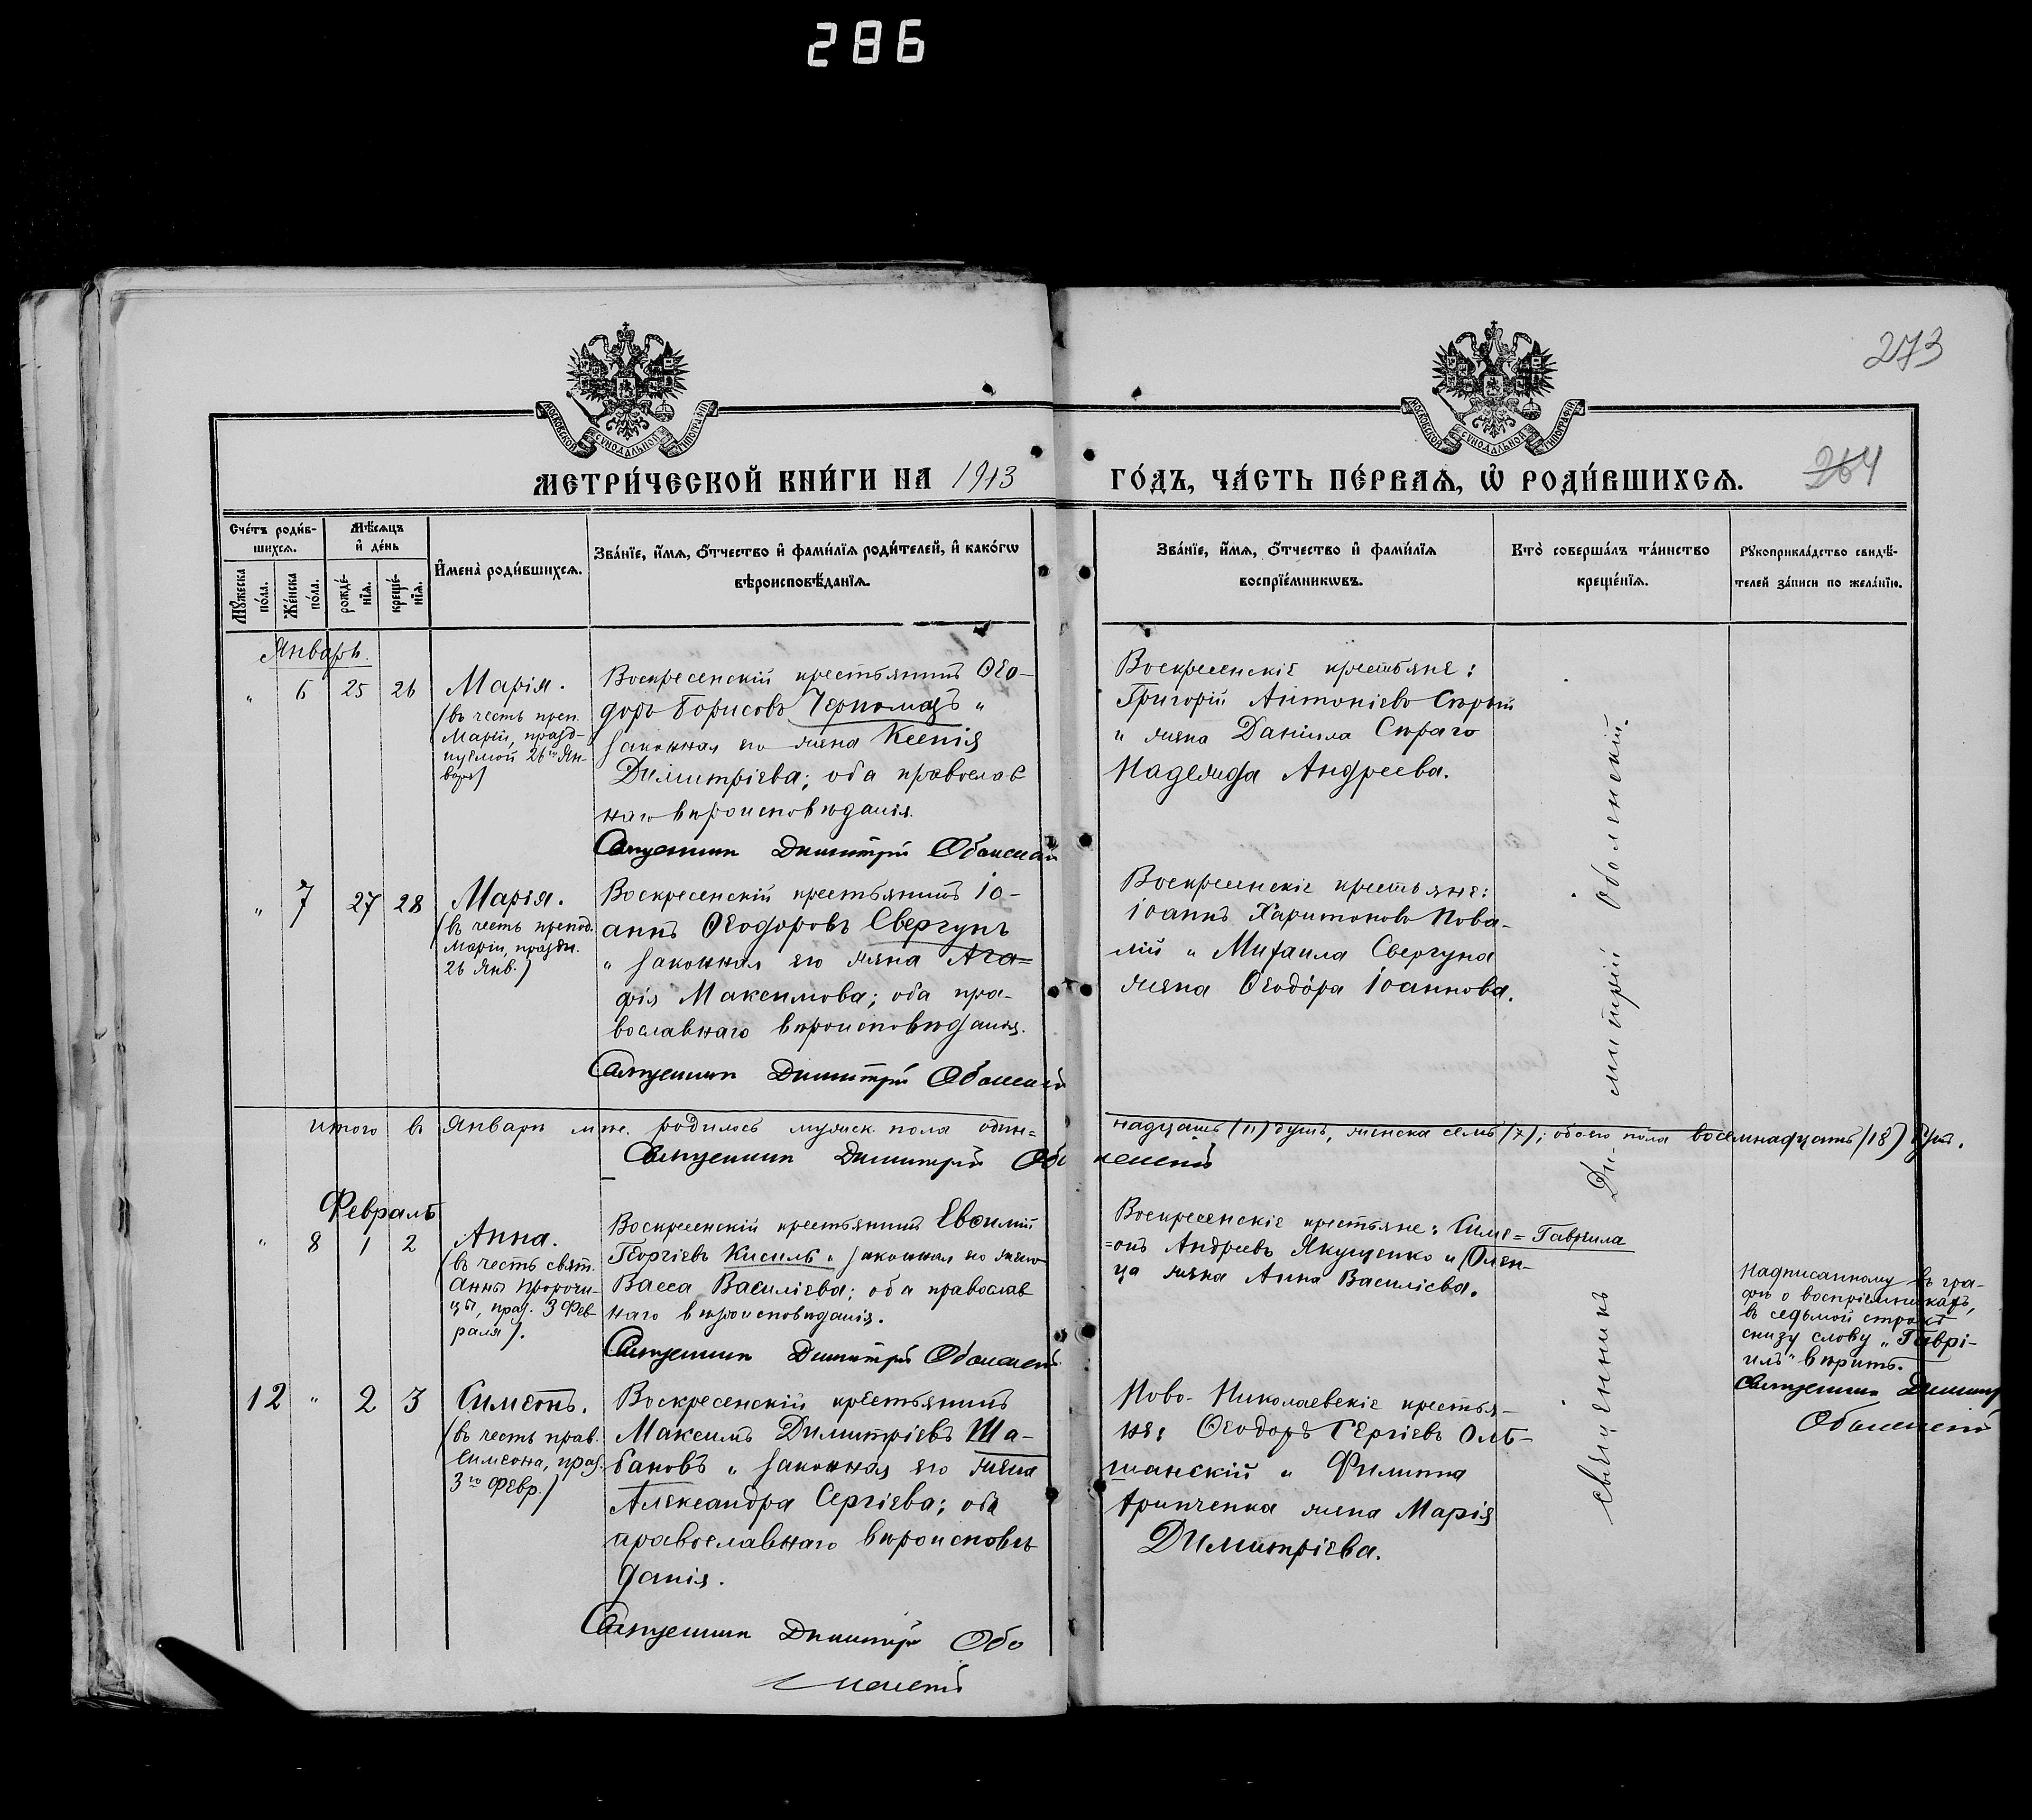 286
273
264
МОСКОВСКОЙ СУНОДАЛЬНОЙ ТИПОГРАФІИ
МОСКОВСКОЙ СУНОДАЛЬНОЙ ТИПОГРАФІИ
МЕТРИ́ЧЕСКОЙ КНИ́ГИ НА 1913 ГО́ДЪ, ЧА́СТЬ ПЕ́РВАѦ, Ѡ РОДИ́ВШИХСѦ.
Сче́тъ роди́в-
шихсѧ.
Мѣ́сѧцъ
и҆ де́нь
Му́жеска
по́ла.
Же́нска
по́ла.
рожде́-
нїѧ.
креще́-
нїѧ.
И҆мена̀ роди́вшихсѧ.
Зва́нїе, и҆́мѧ, ѻ҆́тчество и҆ фами́лїѧ роди́телей, и҆ како́гѡ
вѣроисповѣ́данїѧ.
Зва́нїе, и҆́мѧ, ѻ҆́тчество и҆ фами́лїѧ
воспрїе́мникѡвъ.
Кто̀ соверша́лъ та́инство
креще́нїѧ.
Рꙋкоприкла́дство свидѣ́-
телей за́писи по жела́нїю.
Январь.
" 6 25 26 Марія.
(въ честь преп.
Маріи, празд-
нуемой 26го Ян-
варя)
Воскресенскій крестьянинъ Ѳео-
доръ Борисовъ Черномазъ "
законная его жена Ксенія
Димитріева; оба православ
наго вѣроисповѣданія.
Священникъ Димитрій Оболенскій
Воскресенскіе крестьяне:
Григорій Антоніевъ Сѣрый
и жена Даніила Сѣраго
Надежда Андреева.
" 7 27 28 Марія.
(въ честь препод.
Маріи, праздн.
26 Янв.)
Воскресенскій крестьянинъ Іо-
аннъ Ѳеодоровъ Свергунъ
и законная его жена Ага=
фія Максимова; оба пра-
вославнаго вѣроисповѣданія.
Священникъ Димитрій Оболенскій
Воскресенскіе крестьяне:
Іоаннъ Харитоновъ Пова-
лій и Михаила Свергуна
жена Ѳеодора Іоаннова.
Итого въ Январѣ мѣс. родилось мужск. пола один= надцать (11) душъ, женска семь (7); обоего пола восемнадцать (18) душъ.
Священникъ Димитрій Оболенскій
Февраль
" 8 1 2 Анна.
(въ честь свят.
Анны пророчи-
цы, празд. 3 Фев
раля).
Воскресенскій крестьянинъ Евѳимій
Георгіевъ Кисиль и законная его жена
Васса Василіева; оба православ
наго вѣроисповѣданія.
Священникъ Димитрій Оболенскій
Воскресенскіе крестьяне: Симе= Гавріила
=онъ Андреевъ Якущенко и
жена Анна Василіева.
Надписанному въ гра-
фѣ о воспріемникахъ,
въ седьмой строкѣ
снизу слову „Гаврі-
илъ" вѣрить.
Священникъ Димитр
Оболенскій
12 " 2 3 Симеонъ.
(въ честь прав.
Симеона, празд.
3го Февр.)
Воскресенскій крестьянинъ
Максимъ Димитріевъ Ша-
бановъ и законная его жена
Александра Сергіева; оба
православнаго вѣроисповѣ
данія.
Священникъ Димитрій Обо
ленскій
Ново-Николаевскіе крестья-
не: Ѳеодоръ Сергіевъ Оль-
шанскій и Филиппа
жена Марія
Димитріева.
священникъ Ди-митрій Оболенскій.